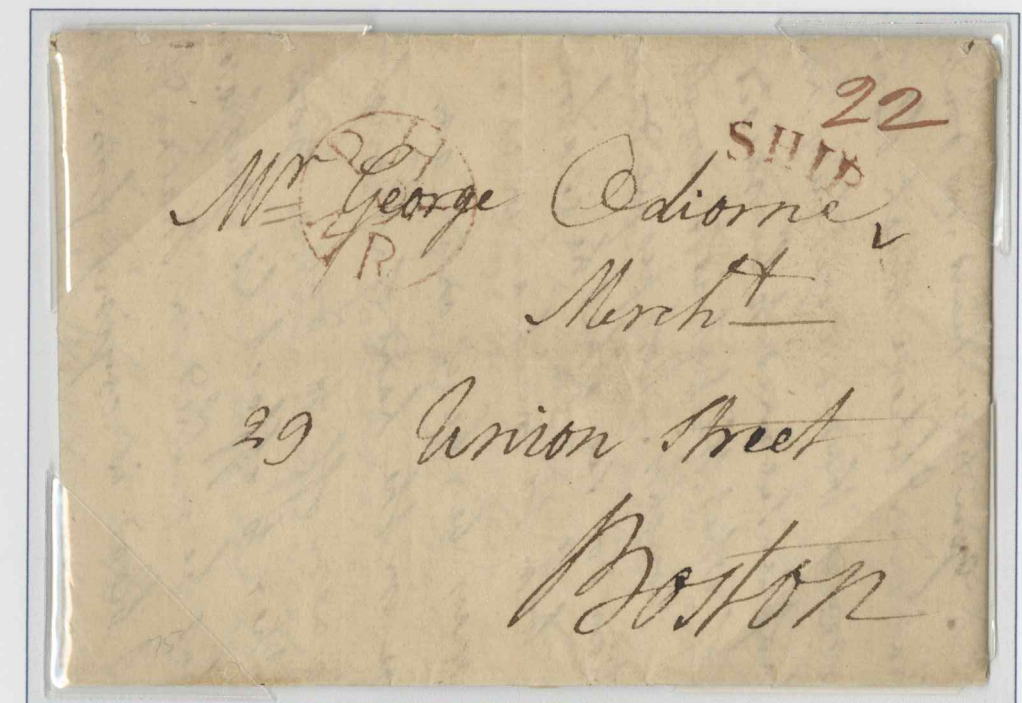 22
SHIP
Mr George Odiorne,
Mercht
29 Union Street
Boston
R
75